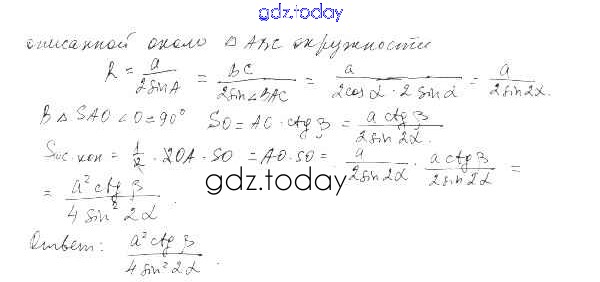 gdz.today
описанной около △ ABC окружности
R = a/2sinA = BC/2sin∠BAC = a/2cosα·2sinα = a/2sin2α.
В △ SAO ∠O=90° SO = AO · ctgβ = a ctgβ/2sin2α.
Sос.кон = 1/2 · 2OA · SO = AO·SO = a/2sin2α · a ctgβ/2sin2α =
gdz.today
= a² ctgβ/4 sin² 2α.
Ответ: a² ctgβ/4 sin² 2α.